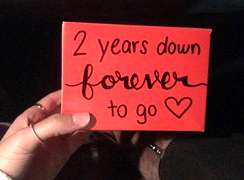 2 years down
forever
to go ♡